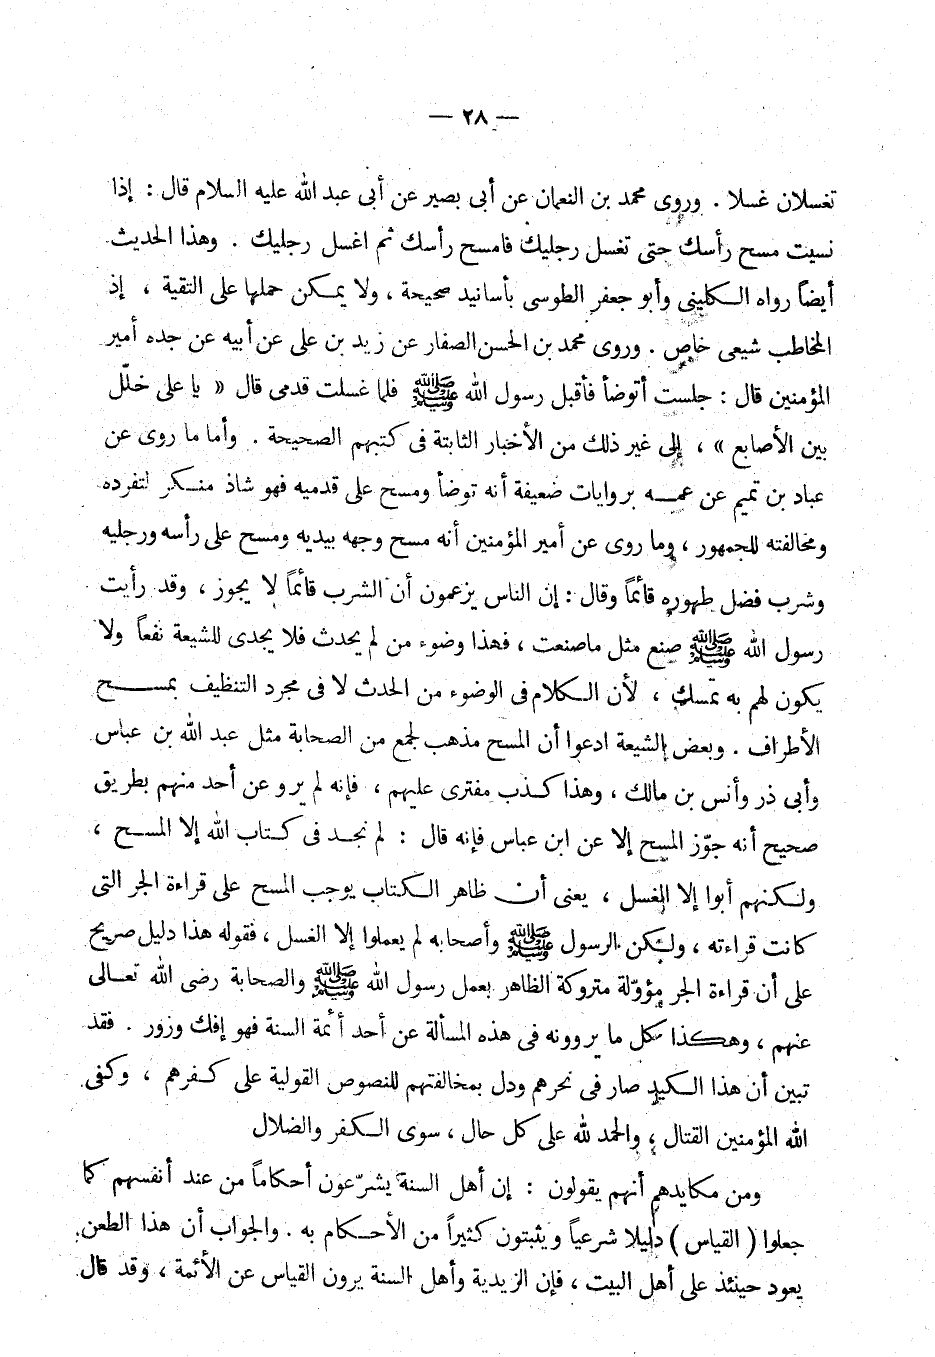 — ٢٨ —
تغسلان غسلا . وروى محمد بن النعمان عن أبى بصير عن أبى عبد الله عليه السلام قال : إذا
نسيت مسح رأسك حتى تغسل رجليك فامسح رأسك ثم اغسل رجليك . وهذا الحديث
أيضاً رواه الكلينى وأبو جعفر الطوسى بأسانيد صحيحة ، ولا يمكن حملها على التقية ، إذ
المخاطب شيعى خاص . وروى محمد بن الحسن الصفار عن زيد بن على عن أبيه عن جده أمير
المؤمنين قال : جلست أتوضأ فأقبل رسول الله ﷺ فلما غسلت قدمى قال « يا على خلّل
بين الأصابع » ، إلى غير ذلك من الأخبار الثابتة فى كتبهم الصحيحة . وأما ما روى عن
عباد بن تميم عن عمه بروايات ضعيفة أنه توضأ ومسح على قدميه فهو شاذ منكر لتفرده
ومخالفته للجمهور ، وما روى عن أمير المؤمنين أنه مسح وجهه بيديه ومسح على رأسه ورجليه
وشرب فضل طهوره قائماً وقال : إن الناس يزعمون أن الشرب قائماً لا يجوز ، وقد رأيت
رسول الله ﷺ صنع مثل ماصنعت ، فهذا وضوء من لم يحدث فلا يجدى للشيعة نفعاً ولا
يكون لهم به تمسك ، لأن الكلام فى الوضوء من الحدث لا فى مجرد التنظيف بمسح
الأطراف . وبعض الشيعة ادعوا أن المسح مذهب لجمع من الصحابة مثل عبد الله بن عباس
وأبى ذر وأنس بن مالك ، وهذا كذب مفترى عليهم ، فإنه لم يرو عن أحد منهم بطريق
صحيح أنه جوّز المسح إلا عن ابن عباس فإنه قال : لم نجد فى كتاب الله إلا المسح ،
ولكنهم أبوا إلا الغسل ، يعنى أن ظاهر الكتاب يوجب المسح على قراءة الجر التى
كانت قراءته ، ولكن الرسول ﷺ وأصحابه لم يعملوا إلا الغسل ، فقوله هذا دليل صريح
على أن قراءة الجر مؤوّلة متروكة الظاهر بعمل رسول الله ﷺ والصحابة رضى الله تعالى
عنهم ، وهكذا كل ما يروونه فى هذه المسألة عن أحد أئمة السنة فهو إفك وزور . فقد
تبين أن هذا الكيد صار فى نحرهم ودل بمخالفتهم للنصوص القولية على كفرهم ، وكفى
الله المؤمنين القتال ، والحمد لله على كل حال ، سوى الكفر والضلال
ومن مكايدهم أنهم يقولون : إن أهل السنة يشرّعون أحكاماً من عند أنفسهم كما
جعلوا ( القياس ) دليلا شرعياً ويثبتون كثيراً من الأحكام به . والجواب أن هذا الطعن
يعود حينئذ على أهل البيت ، فإن الزيدية وأهل السنة يرون القياس عن الأئمة ، وقد قال